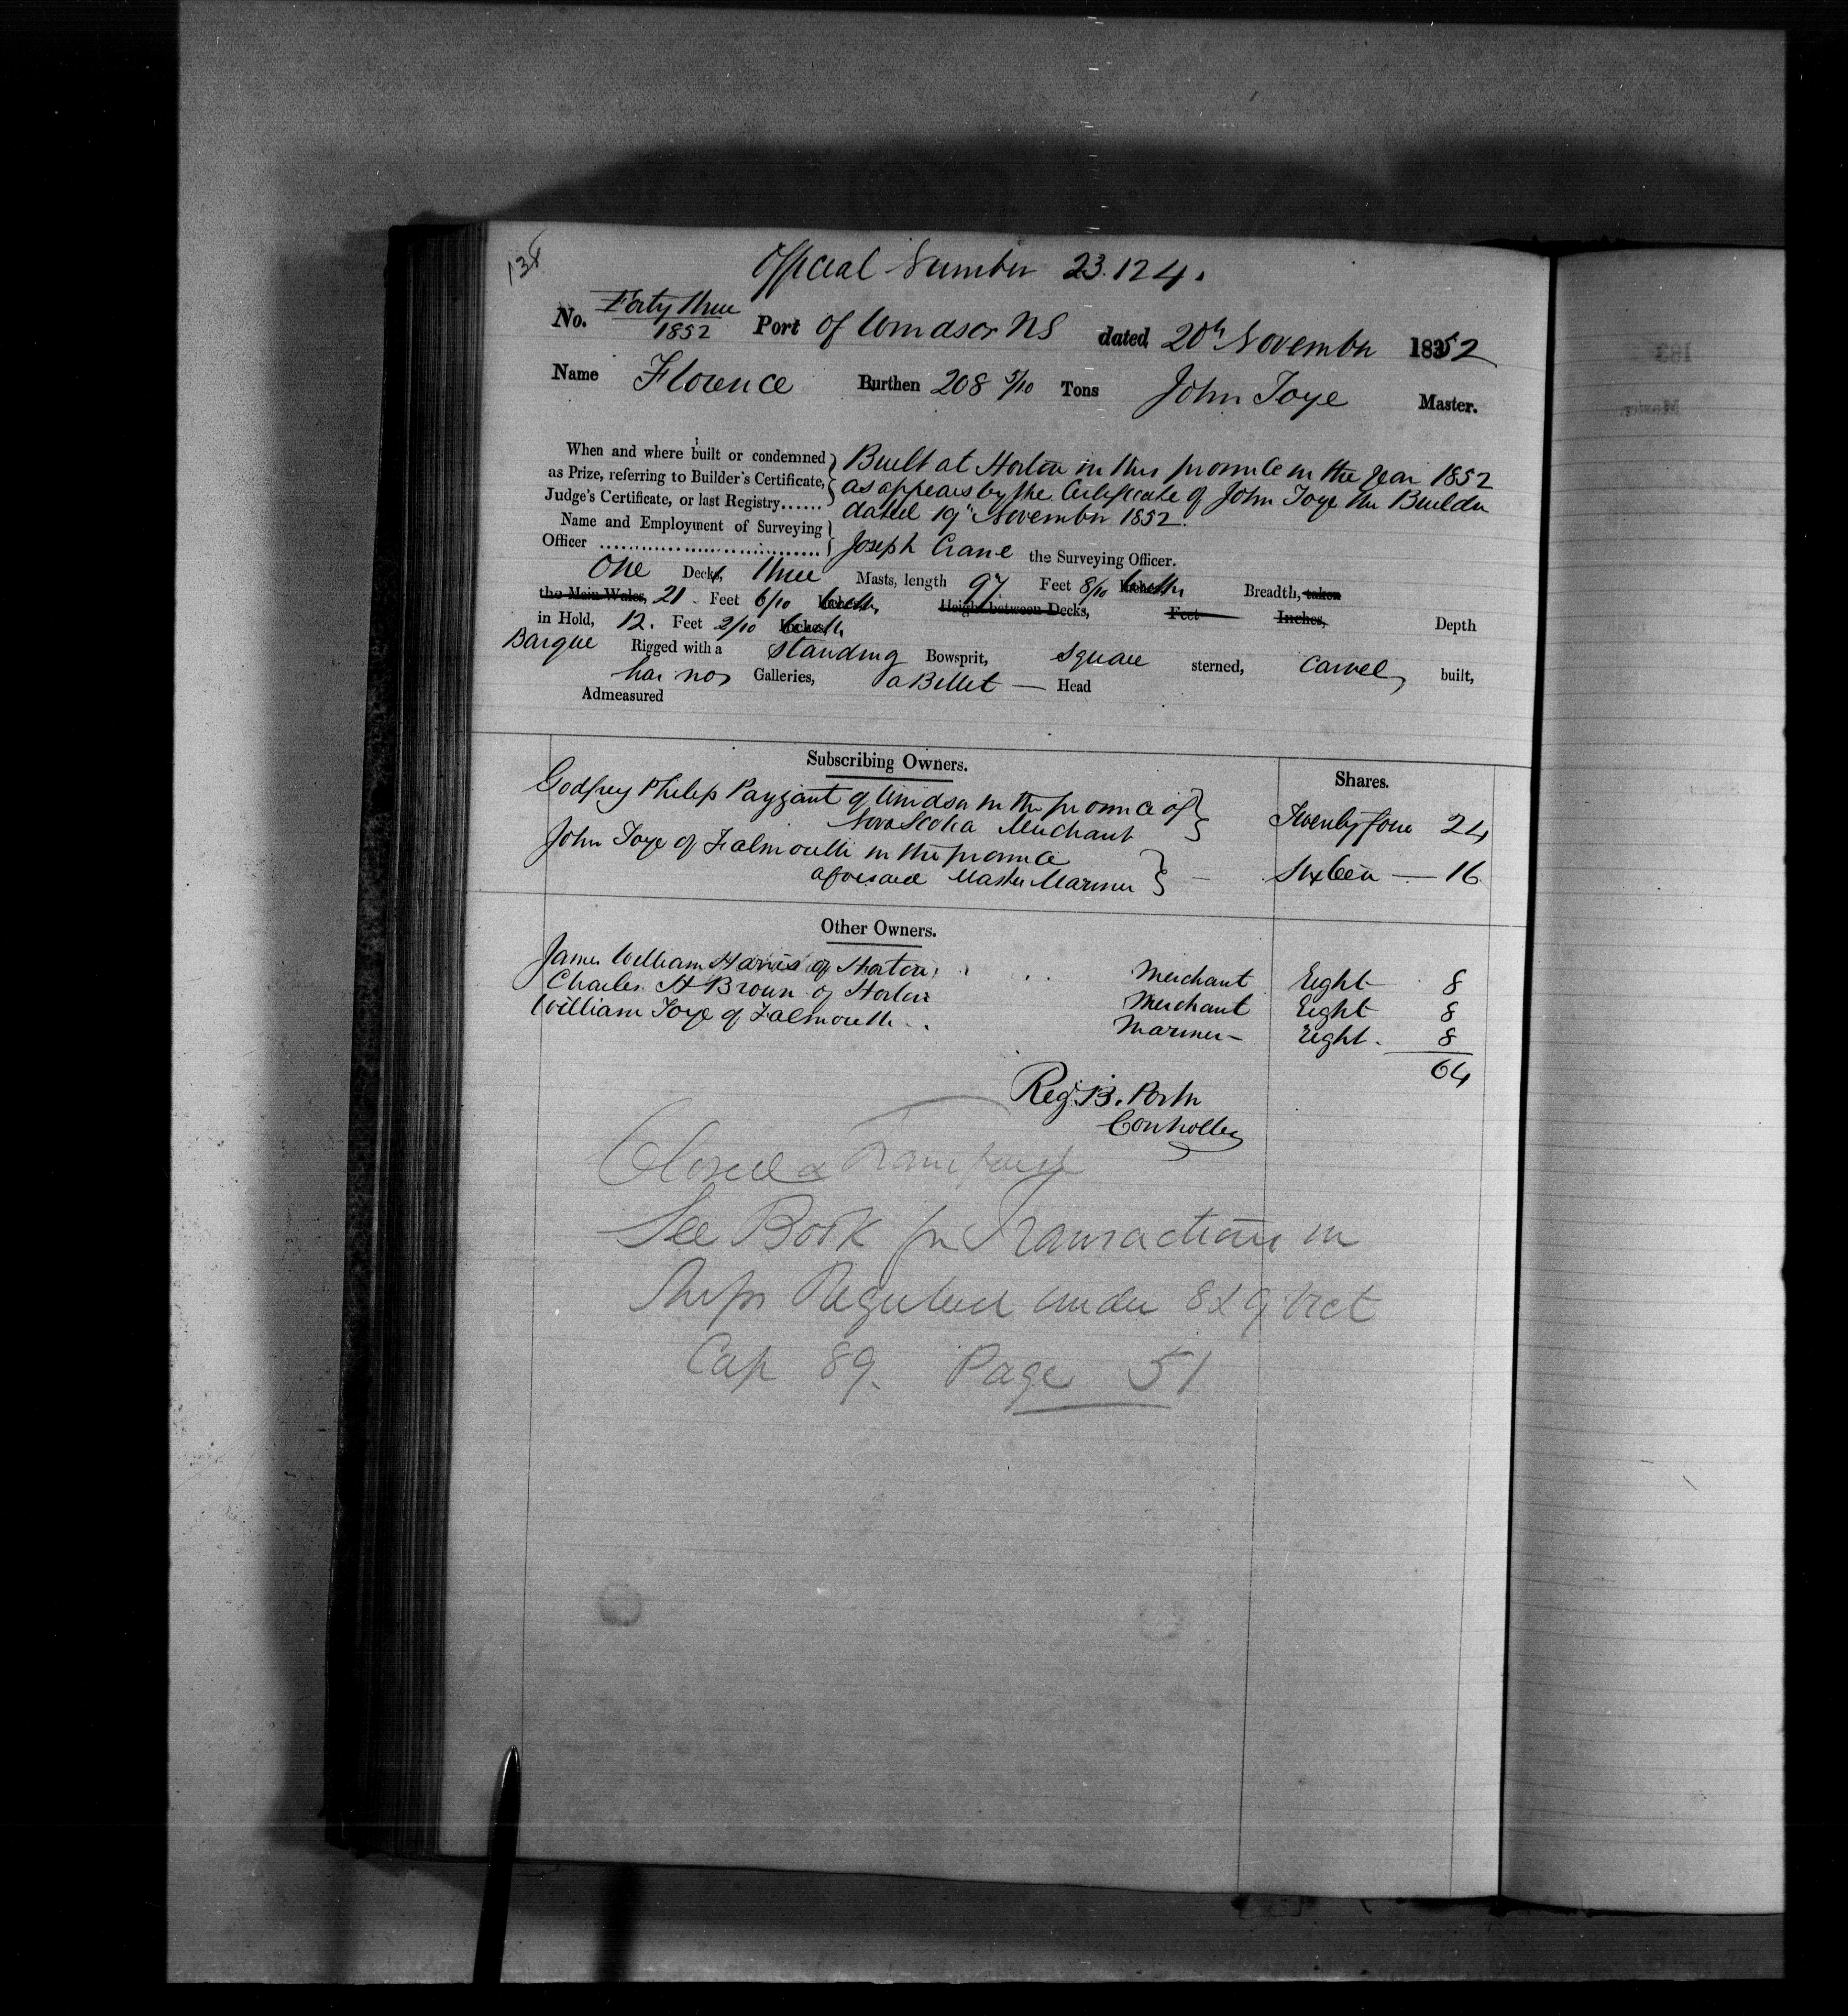 134
Official Number 23.124.
No. Forty three / 1852 Port of Windsor NS dated 20th November 1852
Name Florence Burthen 208 5/10 Tons John Toye Master.
When and where built or condemned as Prize, referring to Builder's Certificate, Judge's Certificate, or last Registry......
Built at Horton in this province in the year 1852
as appears by the Certificate of John Toye the Builder
dated 19th November 1852.
Name and Employment of Surveying Officer
Joseph Crane the Surveying Officer.
One Decks, three Masts, length 97 Feet 8/10 Inches tenths Breadth, taken
the Main Wales, 21 Feet 6/10 Inches, tenths, Height between Decks, Feet Inches, Depth
in Hold, 12. Feet 2/10 Inches, tenths
Barque Rigged with a standing Bowsprit, square sterned, carvel, built,
has no Galleries, a Billet — Head
Admeasured
Subscribing Owners. Shares.
Godfrey Philip Payzant of Windsor in the province of
Nova Scotia Merchant Twenty four 24
John Toye of Falmouth in the province
aforesaid Master Mariner — Sixteen — 16
Other Owners.
James William Harris of Horton Merchant Eight 8
Charles H Brown of Horton Merchant Eight 8
William Toye of Falmouth Mariner — Eight. 8
64
Reg. B. Porter
Controller
Closed & Transferred
See Book for Transactions in
Ships Registered under 8 & 9 Vict
Cap 89. Page 51